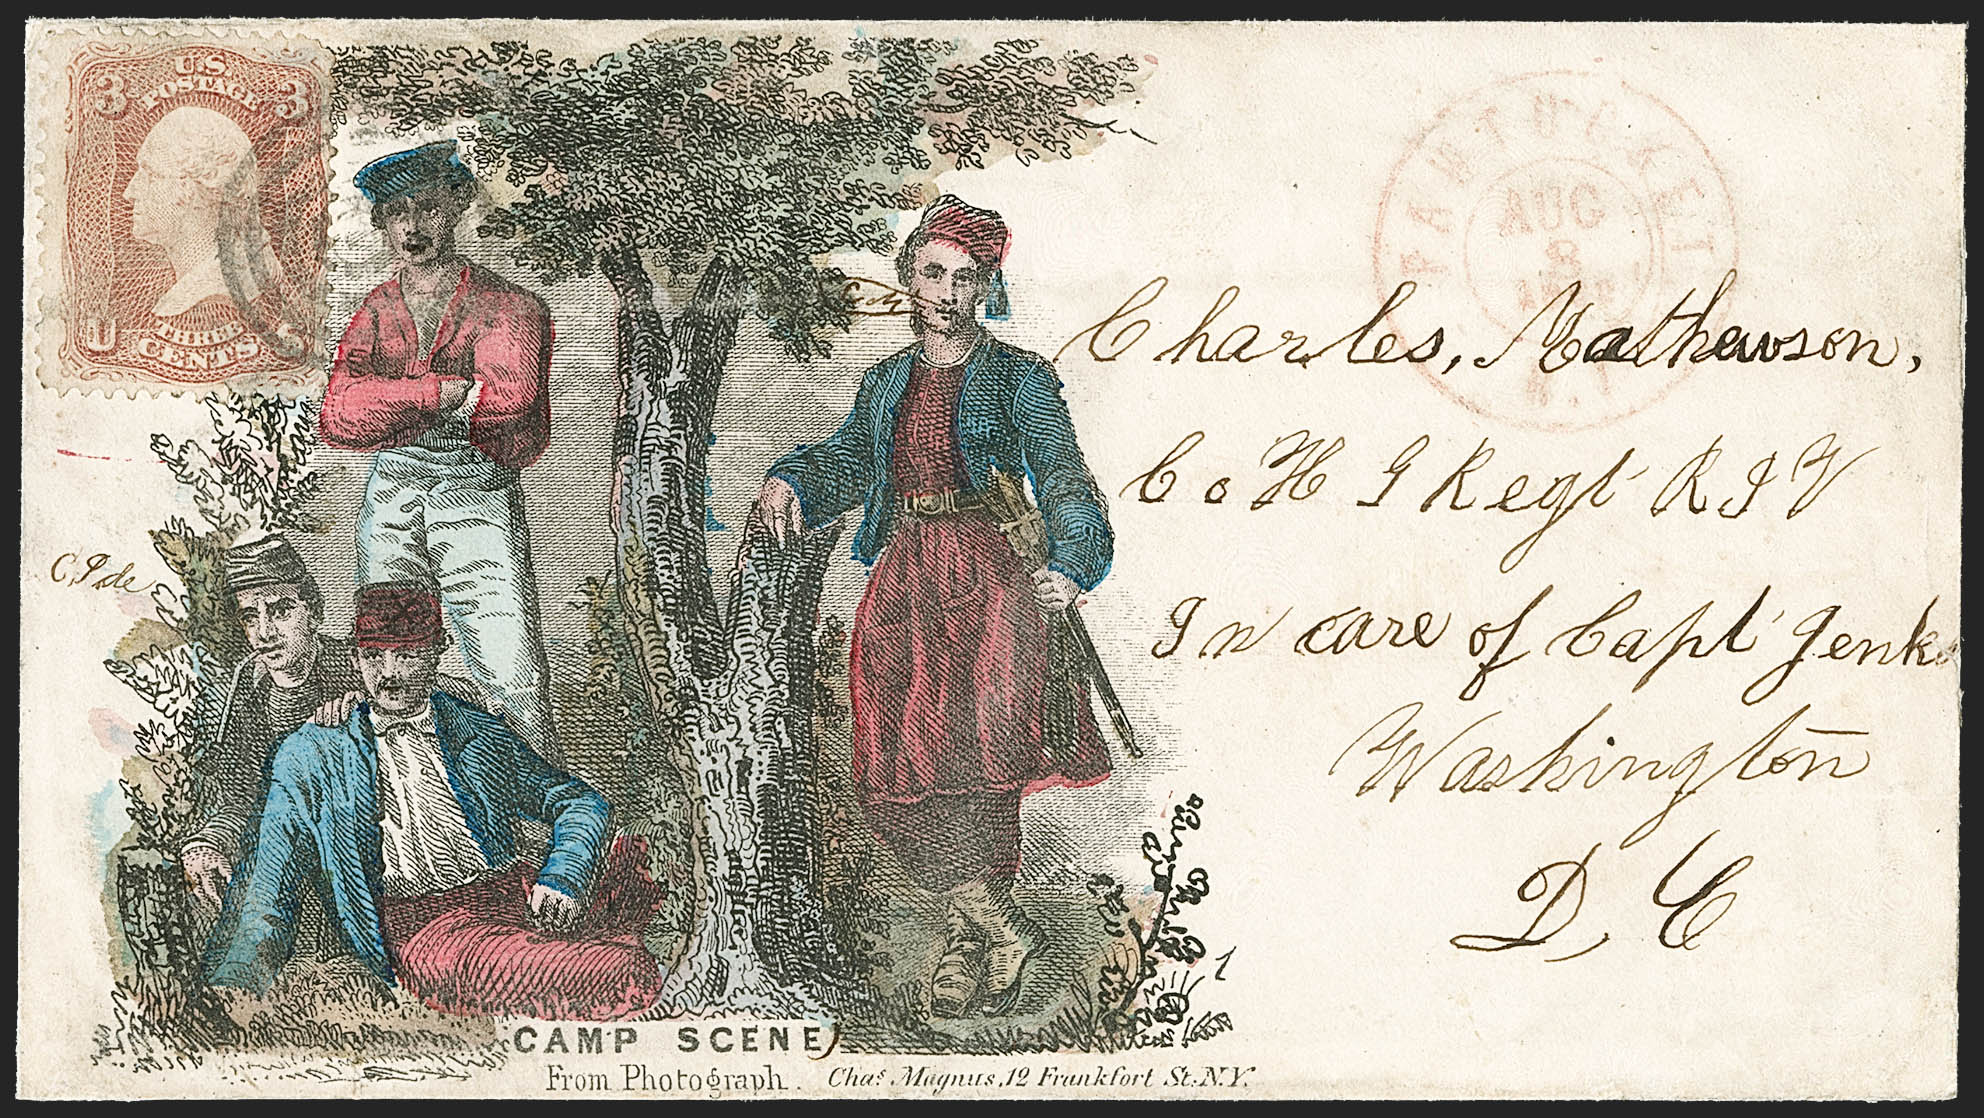 U.S.
POSTAGE
3 3
U S
THREE
CENTS
PAWTUCKET
AUG
8
R.I.
Charles, Mathewson,
Co H 9 Regt R I V
In care of Capt Jenks
Washington
D C
CAMP SCENE
From Photograph. Chas Magnus, 12 Frankfort St. N.Y.